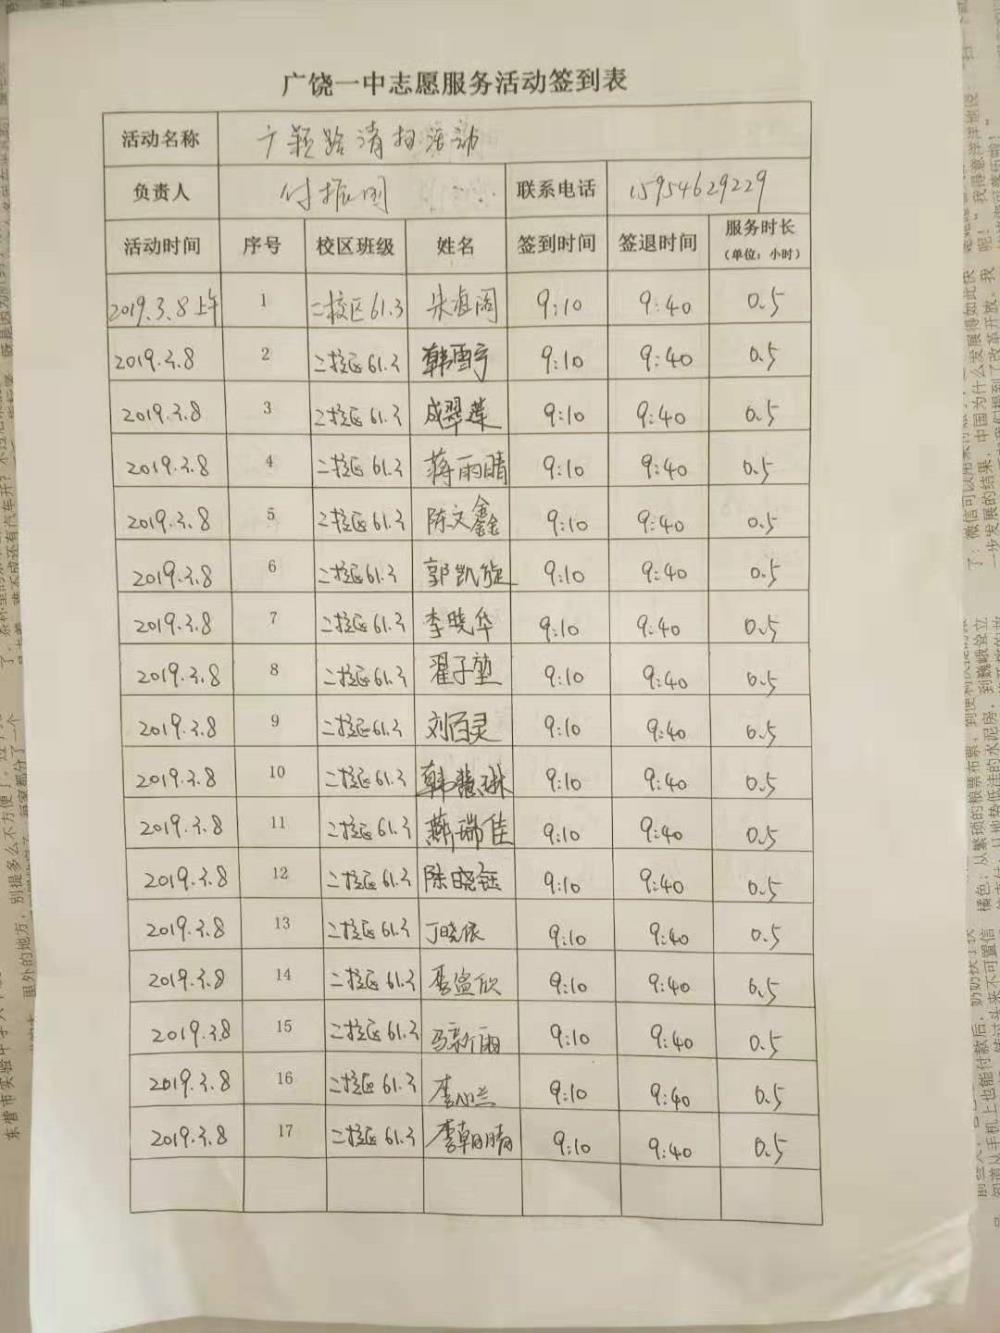 广饶一中志愿服务活动签到表
活动名称 广颖路清扫活动
负责人 付振国 联系电话 15954629229
活动时间 序号 校区班级 姓名 签到时间 签退时间 服务时长
(单位：小时)
2019.3.8上午 1 二校区61.3 朱海阔 9:10 9:40 0.5
2019.3.8 2 二校区61.3 韩雪宇 9:10 9:40 0.5
2019.3.8 3 二校区61.3 成翠莲 9:10 9:40 0.5
2019.3.8 4 二校区61.3 蒋雨晴 9:10 9:40 0.5
2019.3.8 5 二校区61.3 陈文鑫 9:10 9:40 0.5
2019.3.8 6 二校区61.3 郭凯旋 9:10 9:40 0.5
2019.3.8 7 二校区61.3 李晓华 9:10 9:40 0.5
2019.3.8 8 二校区61.3 翟子堃 9:10 9:40 0.5
2019.3.8 9 二校区61.3 刘百灵 9:10 9:40 0.5
2019.3.8 10 二校区61.3 韩慧琳 9:10 9:40 0.5
2019.3.8 11 二校区61.3 燕瑞佳 9:10 9:40 0.5
2019.3.8 12 二校区61.3 陈晓钰 9:10 9:40 0.5
2019.3.8 13 二校区61.3 丁晓依 9:10 9:40 0.5
2019.3.8 14 二校区61.3 李宣欣 9:10 9:40 0.5
2019.3.8 15 二校区61.3 马新雨 9:10 9:40 0.5
2019.3.8 16 二校区61.3 李心兰 9:10 9:40 0.5
2019.3.8 17 二校区61.3 李朝晴 9:10 9:40 0.5